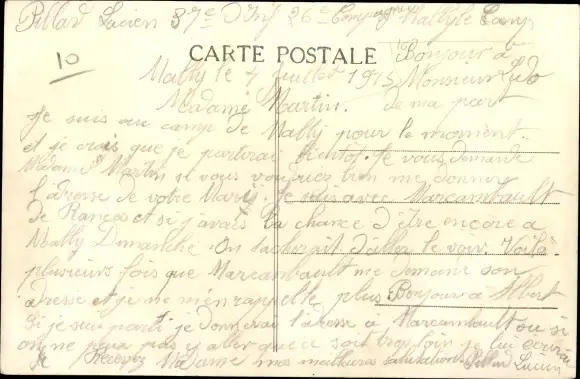 Pillard Lucien 37e D'Inf 26e Compagnie Mailly le Camp
CARTE POSTALE
10
Bonjour à
Monsieur Ludo
de ma part
Mailly le 4 juillet 1915
Madame Martin.
Je suis au camp de Mailly pour le moment.
et je crois que je partirai bientôt. Je vous demande
Madame Martin si vous vouriez bien me donner
l'adresse de votre Mari. Je suis avec Marcambault
de Rançes et si j'avais la chance d'être encore a
Mailly Dimanche. On tacherait d'aller le voir. Voila
plusieurs fois que Marcambault me demande son
adresse et je me m'en rappelle plus Bonjour à Albert
Si je suis parti je donnerai l'adresse à Marcambault ou si
on ne peux pas y aller que ce soit trop loin je lui écrirai
Je Recevez Madame mes meilleurs salutations Pillard Lucien